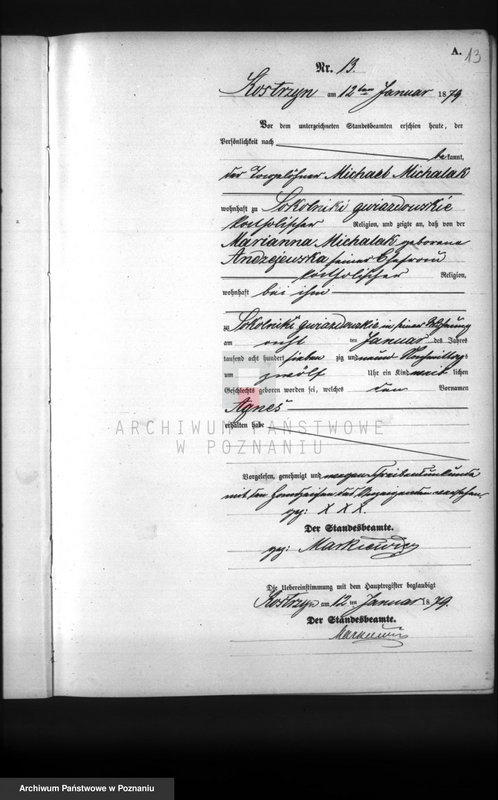 A.
13
Nr. 13.
Kostrzyn am 12ten Januar 1879
Vor dem unterzeichneten Standesbeamten erschien heute, der
Persönlichkeit nach
bekannt,
der Tagelöhner Michael Michalak
wohnhaft zu Sokolniki gwiazdowskie
katholischer Religion, und zeigte an, daß von der
Marianna Michalak geborene
Andrzejewska seiner Ehefrau
katholischer Religion,
wohnhaft bei ihm
zu Sokolniki gwiazdowskie in seiner Wohnung
am acht ten Januar des Jahres
tausend acht hundert sieben zig und neun Nachmittags
um zwölf Uhr ein Kind weib lichen
Geschlechts geboren worden sei, welches den Vornamen
Agnes
erhalten habe
ARCHIWUM PAŃSTWOWE
W POZNANIU
Vorgelesen, genehmigt und wegen Schreibensunkunde
mit den Handzeichen des Anzeigenden versehen.
gez: X X X.
Der Standesbeamte.
gez: Markiewicz
Die Uebereinstimmung mit dem Hauptregister beglaubigt
Kostrzyn am 12 ten Januar 1879.
Der Standesbeamte.
Markiewicz
Archiwum Państwowe w Poznaniu